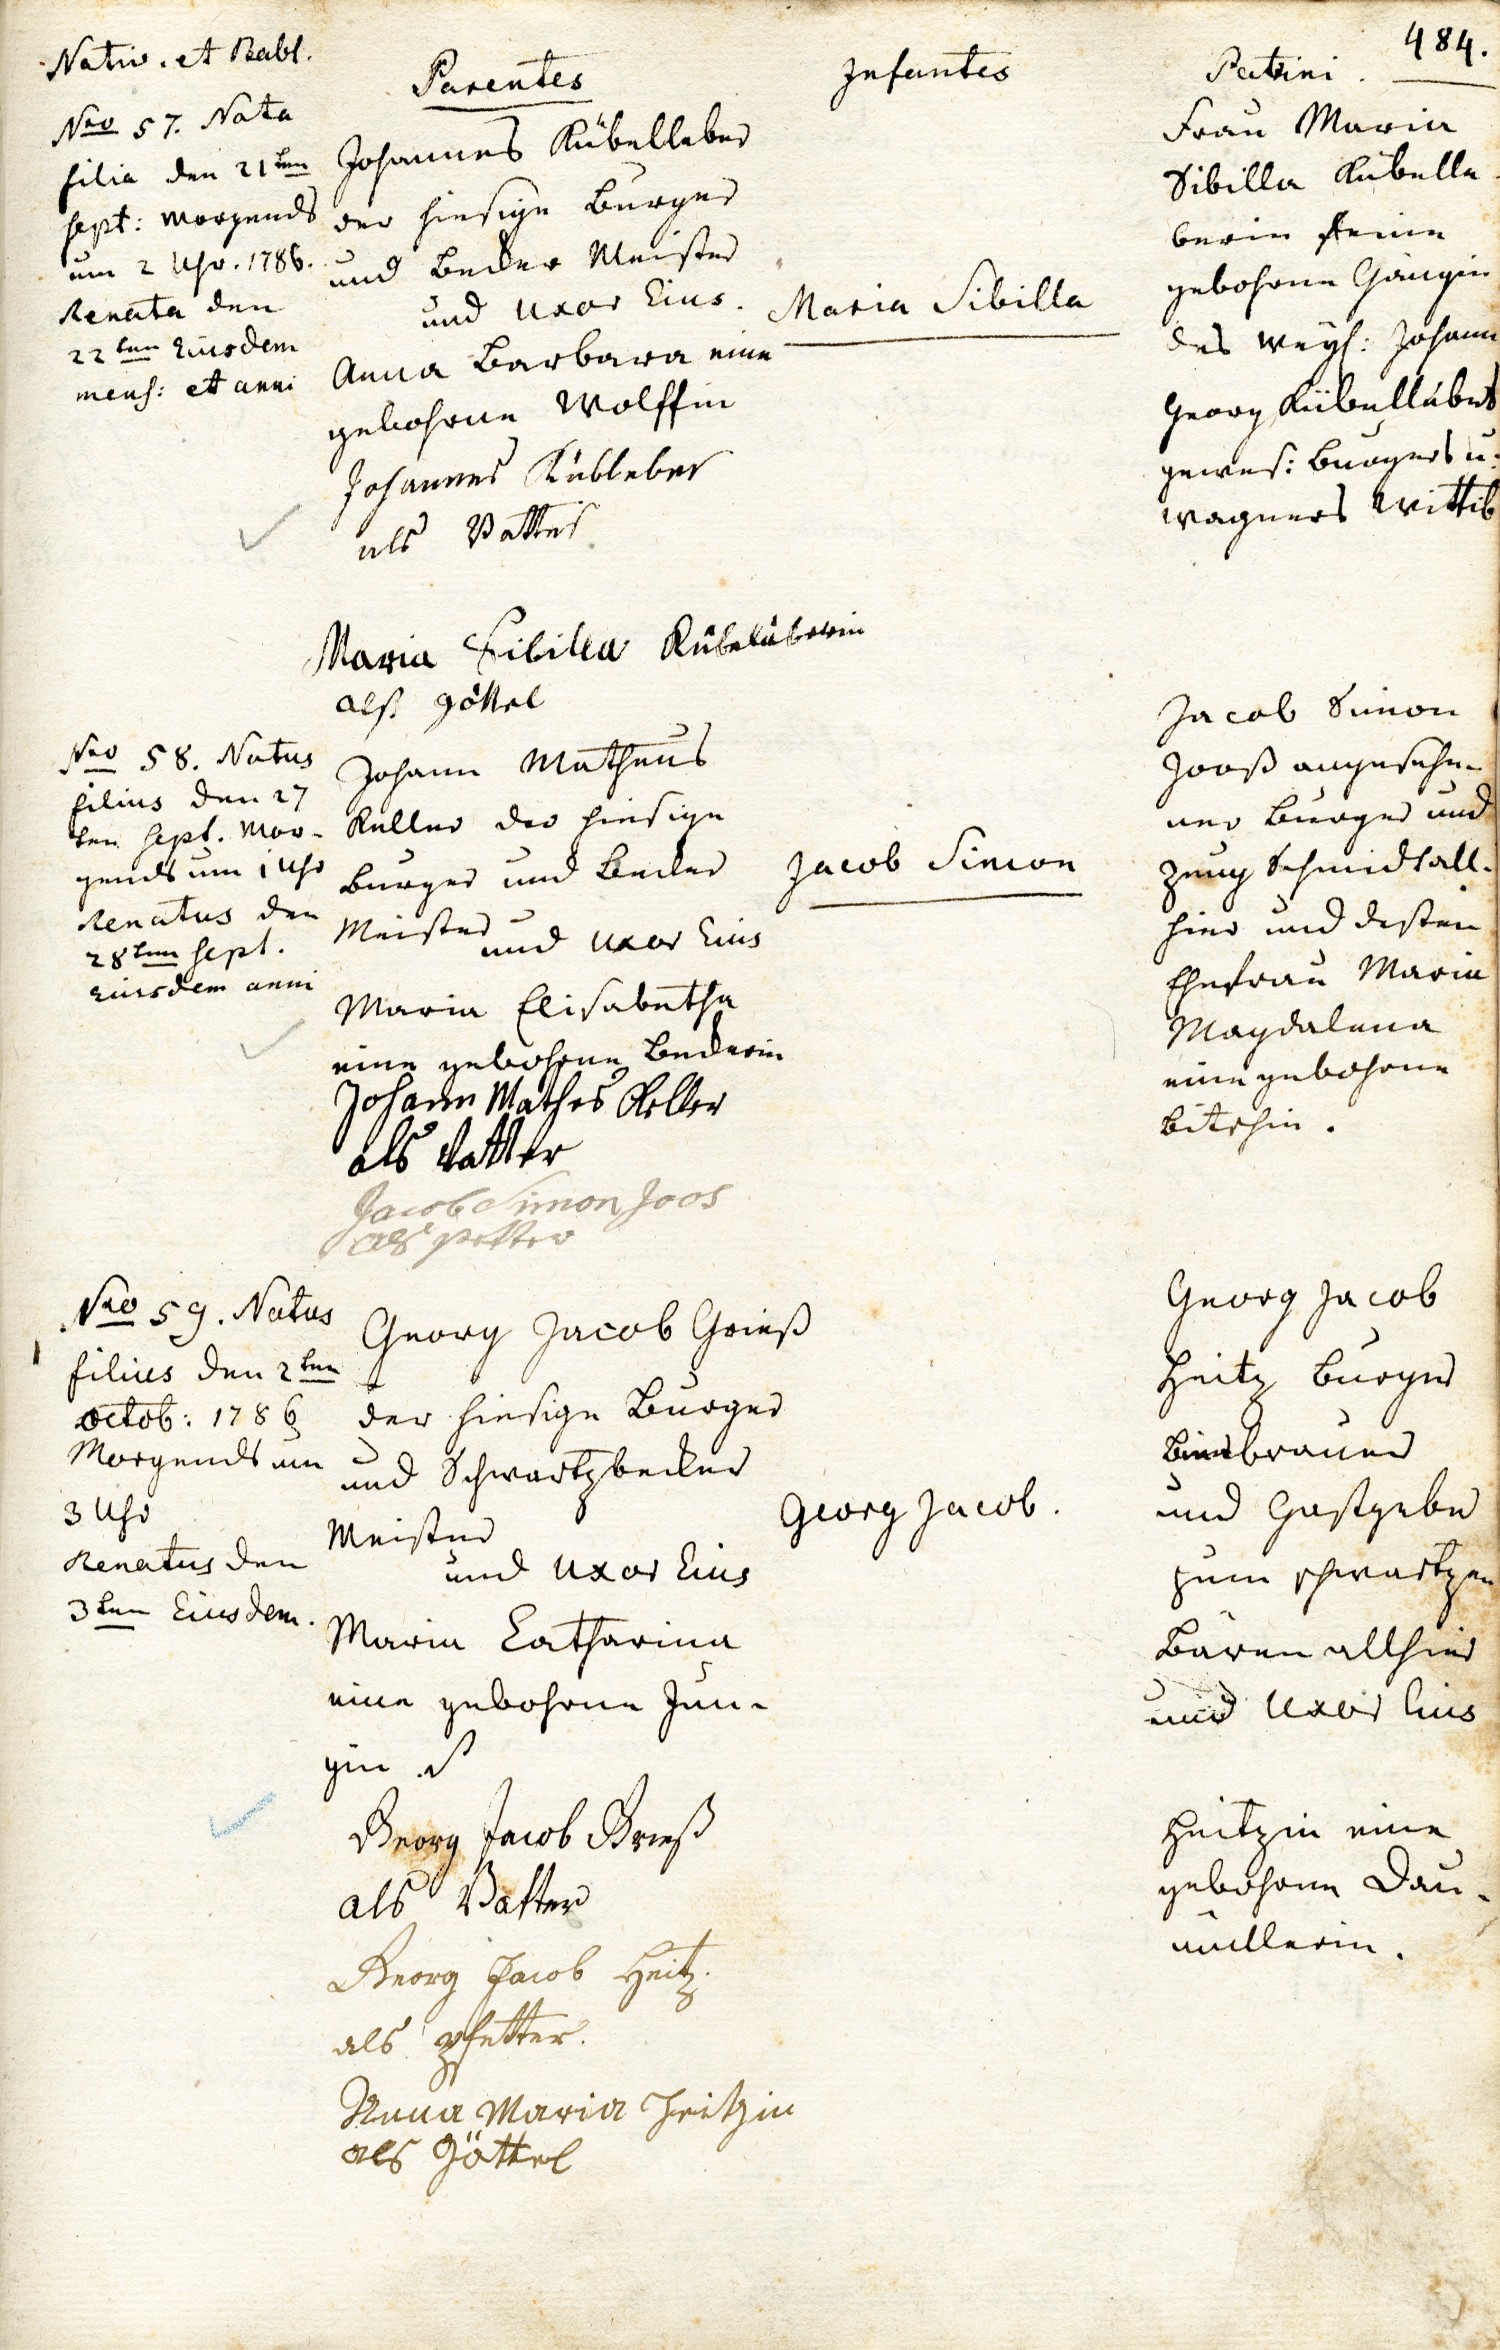 484.
Nativ. et Babt.
Nro 57. Nata
filia den 21ten
Sept: morgends
um 2 Uhr. 1786.
Renata den
22ten Eiusdem
mens: et anni
Parentes
Johannes Kübelleber
der hiesige Burger
und Becker Meister
und Uxor Eius.
Anna Barbara eine
gebohrne Wolffin
Johannes Kübleber
als Vatter
Maria Sibilla Kübeläberin
als göttel
Infantes
Maria Sibilla
Patrini.
Frau Maria
Sibilla Kübelle
berin eine
gebohrne Gängin
des weyl: Johann
Georg Kübellebers
gewes: Burgers u:
wagners Wittib
Nro 58. Natus
filius den 27
ten Sept. Mor-
gends um 1 Uhr
Renatus den
28ten Sept.
Eiusdem anni
Johann Matheus
Keller der hiesige
Burger und Becker
Meister
und Uxor Eius
Maria Elisabetha
eine gebohrne Beckerin
Johann Mathes Keller
als Vatter
Jacob Simon Joos
als petter
Jacob Simon
Jacob Simon
Jooß angesehe-
ner Burger und
Zeug Schmidt all-
hier und dessen
Ehefrau Maria
Magdalena
eine gebohrne
Bitschin.
Nro 59. Natus
filius den 2ten
octob: 1786
Morgends um
3 Uhr
Renatus den
3ten Eiusdem.
Georg Jacob Grieß
der hiesige Burger
und Schwartzbecker
Meister
und Uxor Eius
Maria Catharina
eine gebohrne Jun-
gin
Georg Jacob Grieß
als Vatter
Georg Jacob Heitz.
als pfetter.
Anna Maria Heitzin
als Göttel
Georg Jacob.
Georg Jacob
Heitz Burger
Bierbrauer
und Gastgeber
zum schwartzen
Bären allhier
und Uxor Eius
Heitzin eine
gebohrne Dau-
müllerin.